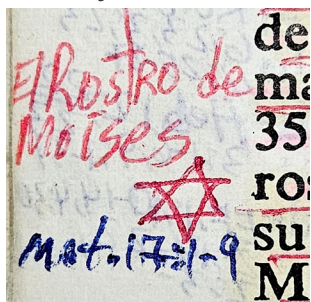 El Rostro de
Moises
Mat. 17:1-9
de
ma
35
ros
su
M